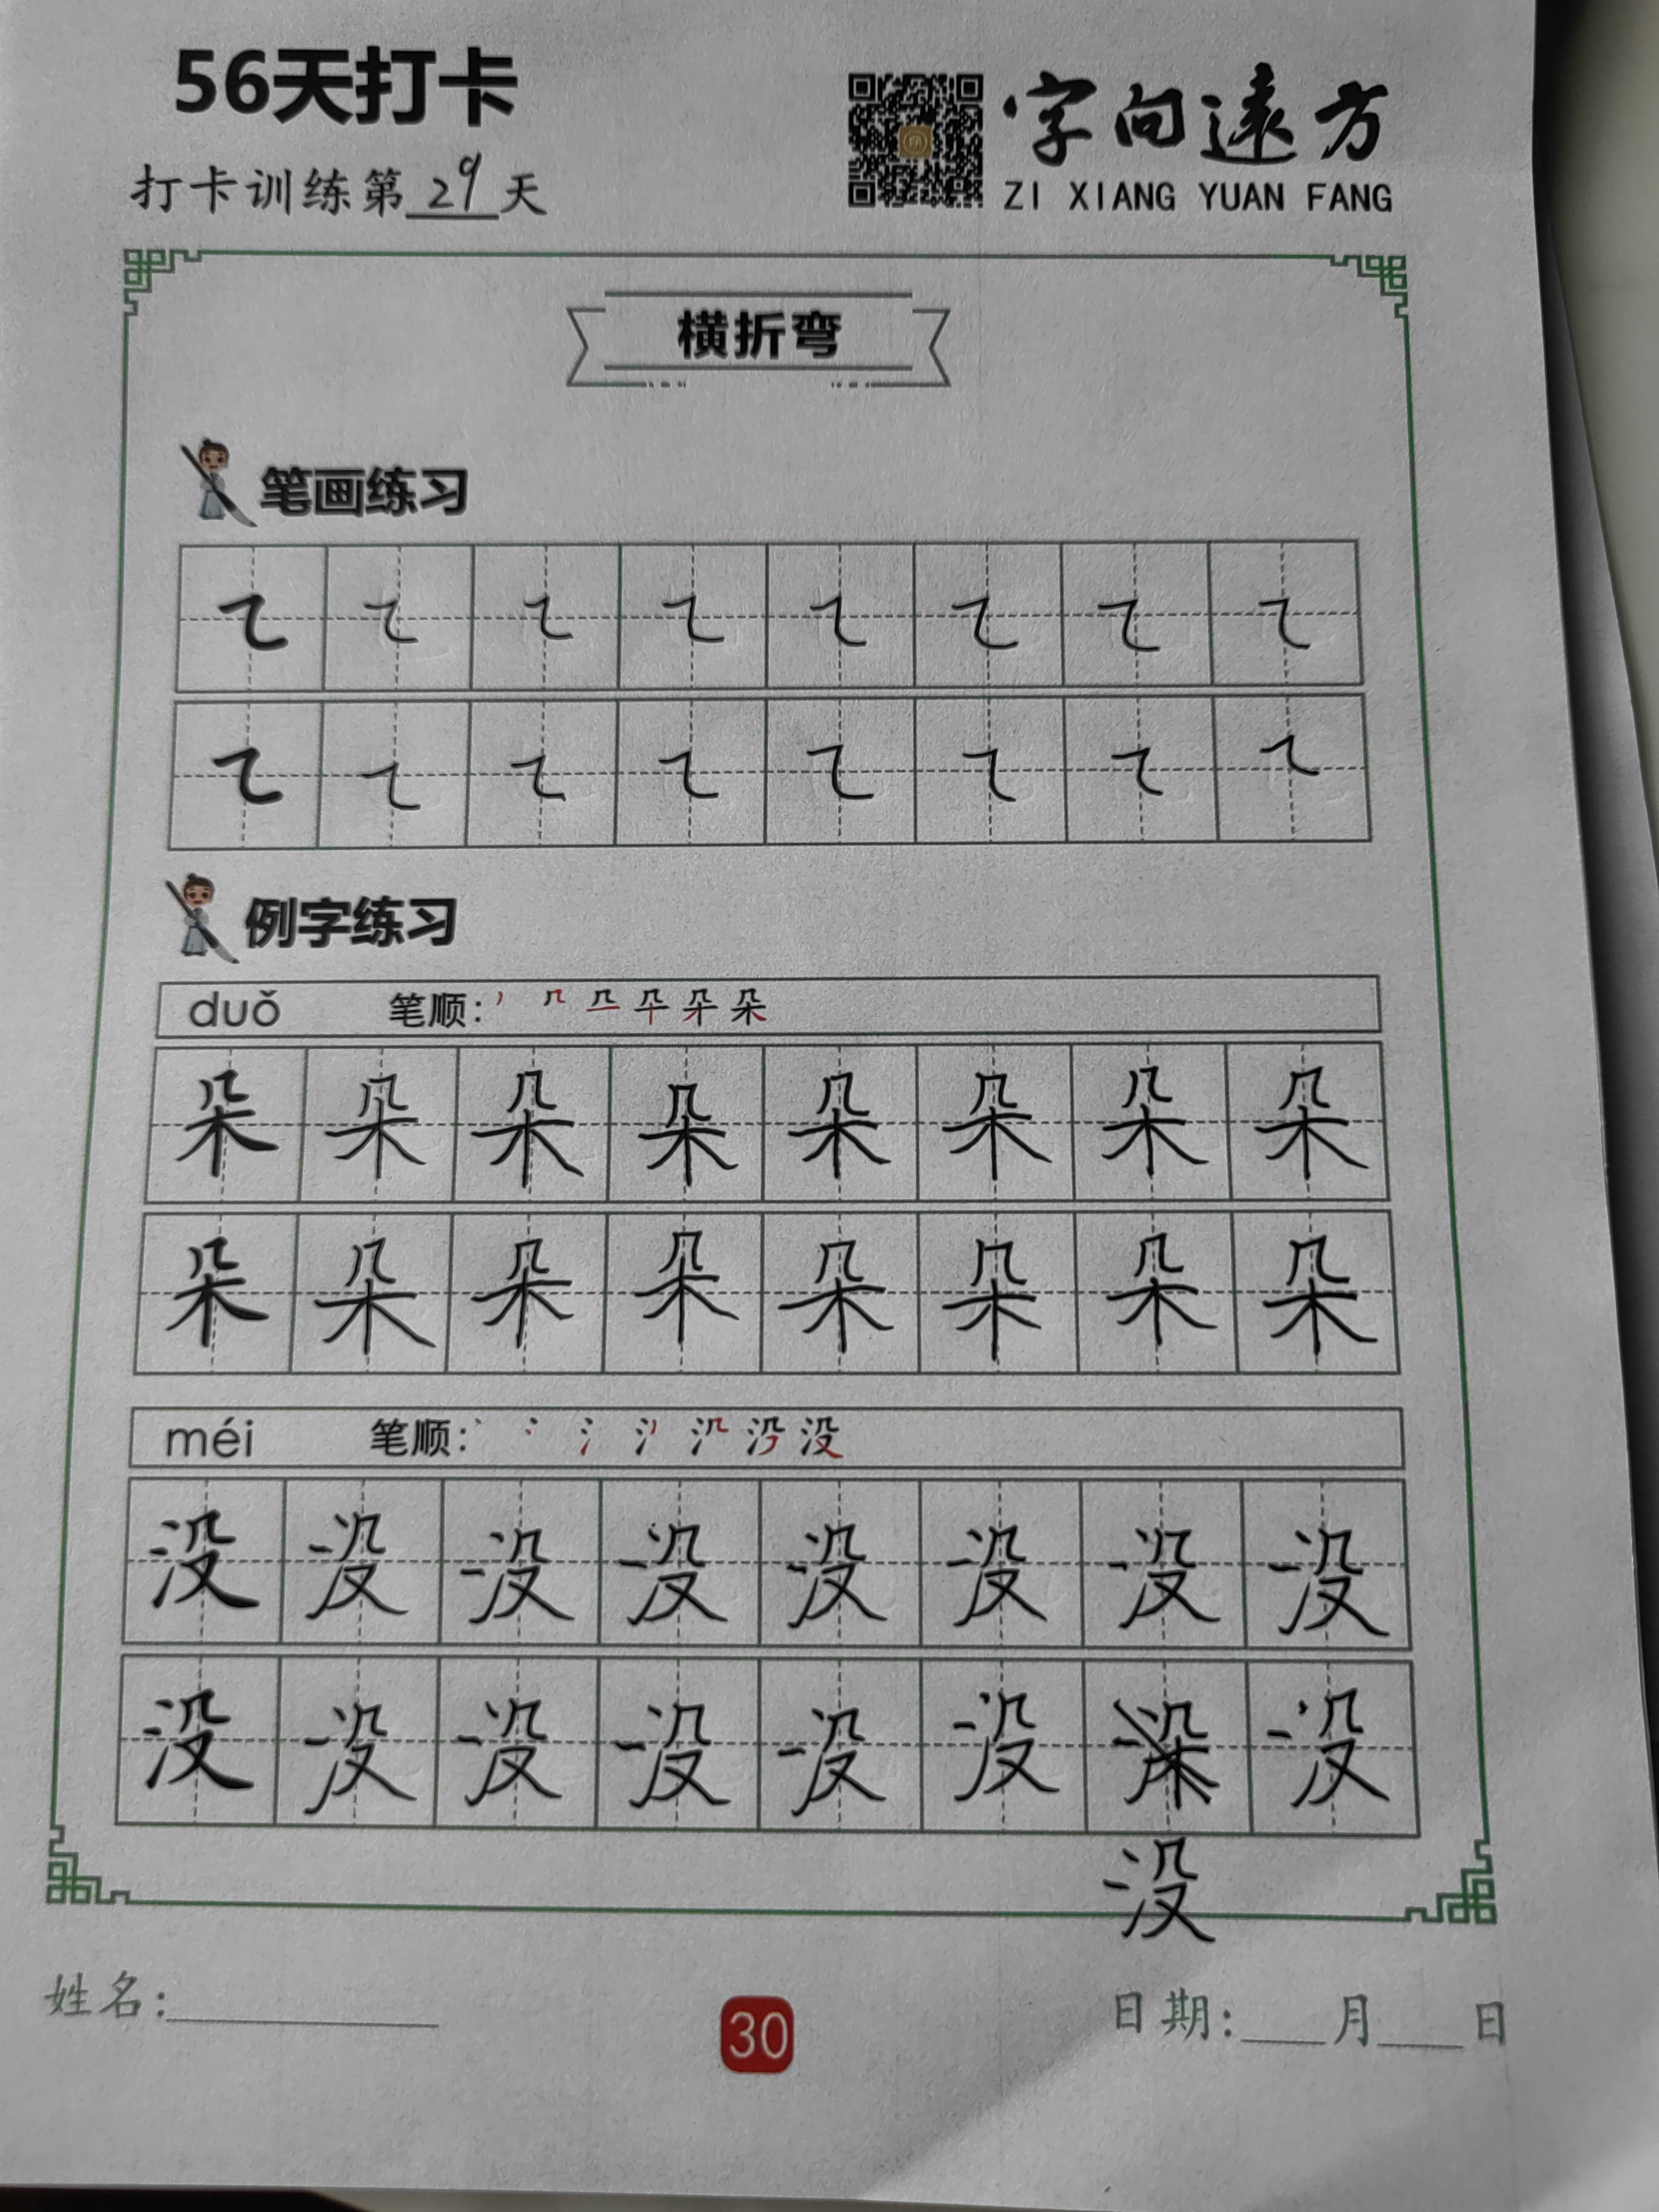 56天打卡
字向遠方
打卡训练第29天
ZI XIANG YUAN FANG
横折弯
笔画练习
㇍ ㇍ ㇍ ㇍ ㇍ ㇍ ㇍ ㇍
㇍ ㇍ ㇍ ㇍ ㇍ ㇍ ㇍ ㇍
例字练习
duǒ 笔顺: 朵
朵 朵 朵 朵 朵 朵 朵 朵
朵 朵 朵 朵 朵 朵 朵 朵
méi 笔顺: 没
没 没 没 没 没 没 没 没
没 没 没 没 没 没 没
没
姓名:
30
日期: 月 日